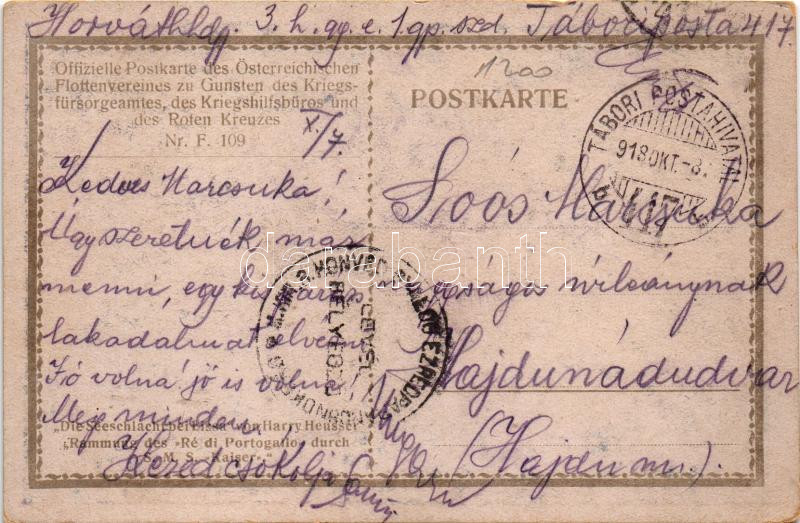 Horváth hdgy. 3. h. gy. e. 1. gp. szd. Tábori posta 417.
Offizielle Postkarte des Österreichischen
Flottenvereines zu Gunsten des Kriegs-
fürsorgeamtes, des Kriegshilfsbüros und
des Roten Kreuzes
Nr. F. 109
1200
POSTKARTE
TÁBORI POSTAHIVATAL
918 OKT.-8.
417
X/7.
Kedves Marcsuka!
Úgy szeretnék már
menni, egy kis
lakadalmat élvezni
Jó volna! jó is volna!
Még minden
Kezed csókolja
Soós Marcsuka
úrleánynak
Hajdunádudvar
(Hajdu m.).
HONVÉD
EZRED
HELYEZ
darabanth
"Die Seeschlacht bei Lissa" von Harry Heusser
"Rammung des »Ré di Portogallo« durch
S. M. S. »Kaiser«."